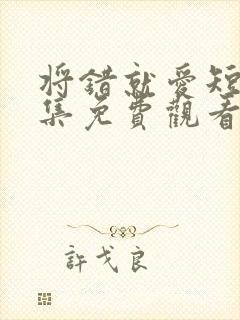 将错就爱短
集免費觀看
許戈良